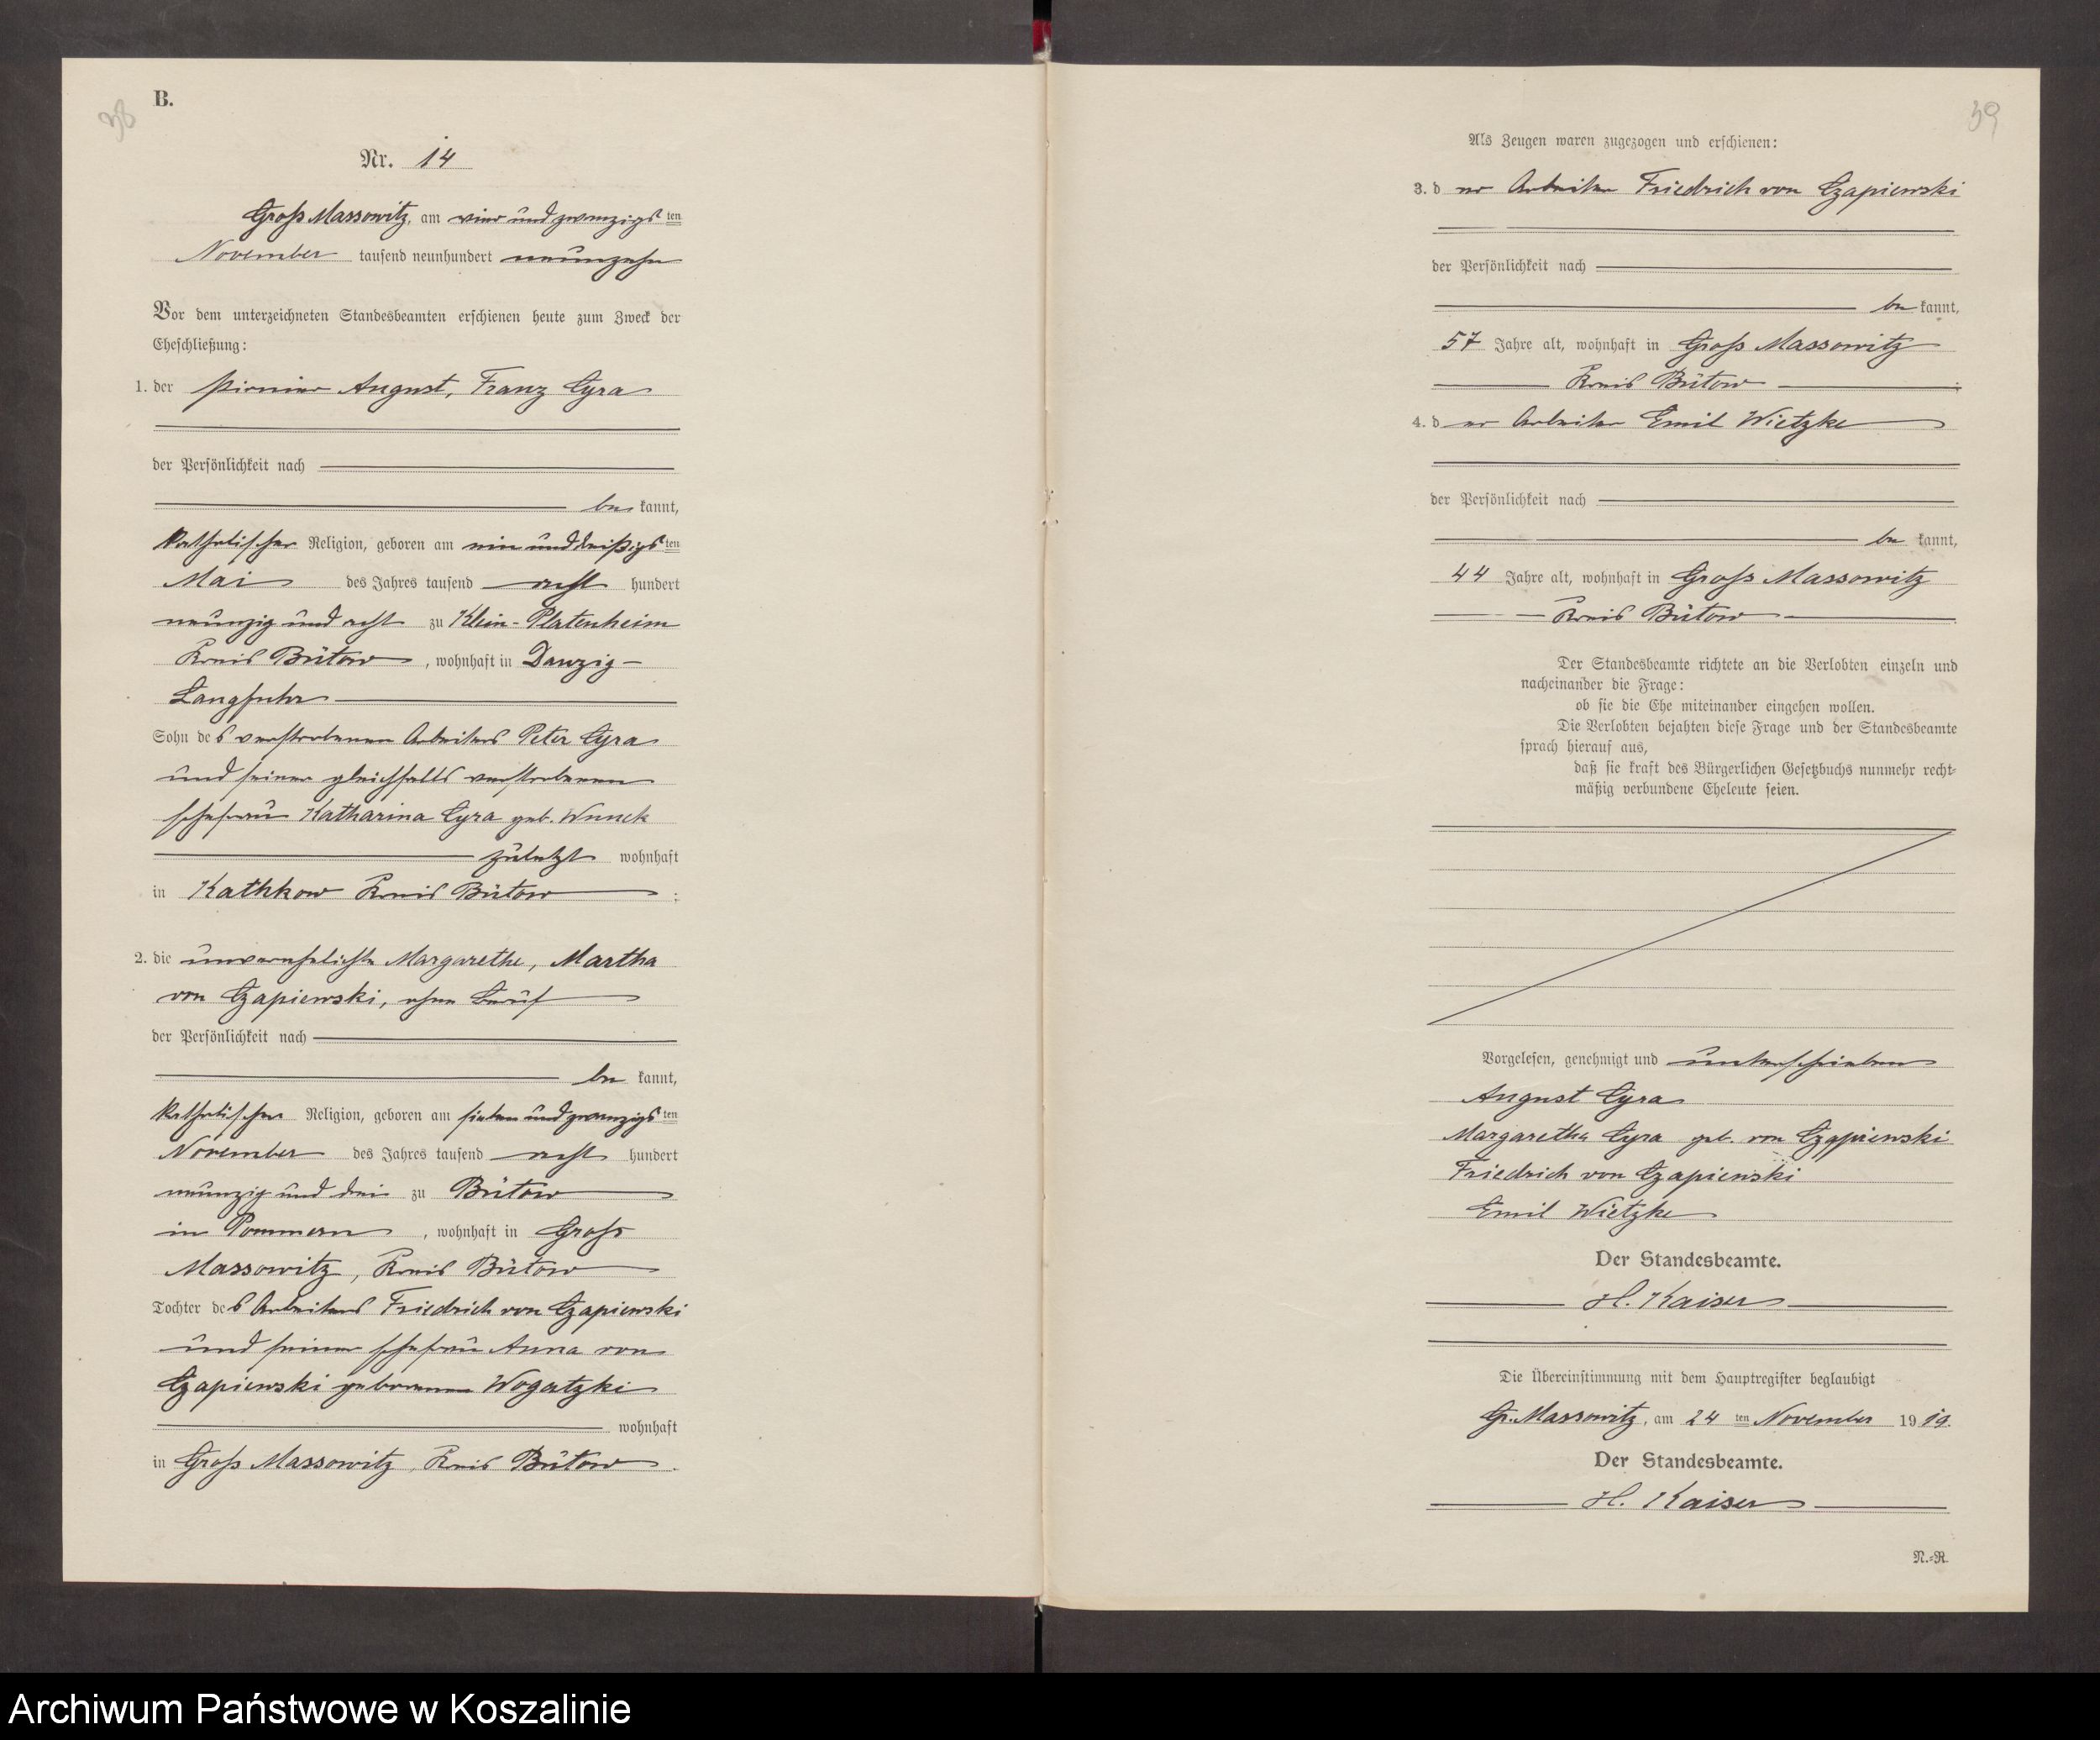 B.
38
Nr. 14
Groß Massowitz, am vier und zwanzigsten
November tausend neunhundert neunzehn
Vor dem unterzeichneten Standesbeamten erschienen heute zum Zweck der
Eheschließung:
1. der Pionier August, Franz Cyra
der Persönlichkeit nach
bekannt,
katholischer Religion, geboren am ein und dreißigsten
Mai des Jahres tausend acht hundert
neunzig und acht zu Klein-Platenheim
Kreis Bütow, wohnhaft in Danzig-
Langfuhr
Sohn des verstorbenen Arbeiters Peter Cyra
und seiner gleichfalls verstorbenen
Ehefrau Katharina Cyra geb. Wnuck
zuletzt wohnhaft
in Kathkow Kreis Bütow ;
2. die unverehelichte Margarethe, Martha
von Czapiewski, ohne Beruf
der Persönlichkeit nach
bekannt,
katholischer Religion, geboren am sieben und zwanzigsten
November des Jahres tausend acht hundert
neunzig und drei zu Bütow
in Pommern, wohnhaft in Groß
Massowitz, Kreis Bütow
Tochter des Arbeiters Friedrich von Czapiewski
und seiner Ehefrau Anna von
Czapiewski geborenen Wogatzki
wohnhaft
in Groß Massowitz, Kreis Bütow.
39
Als Zeugen waren zugezogen und erschienen:
3. der Arbeiter Friedrich von Czapiewski
der Persönlichkeit nach
bekannt,
57 Jahre alt, wohnhaft in Groß Massowitz
Kreis Bütow ;
4. der Arbeiter Emil Wietzke
der Persönlichkeit nach
bekannt,
44 Jahre alt, wohnhaft in Groß Massowitz
Kreis Bütow .
Der Standesbeamte richtete an die Verlobten einzeln und
nacheinander die Frage:
ob sie die Ehe miteinander eingehen wollen.
Die Verlobten bejahten diese Frage und der Standesbeamte
sprach hierauf aus,
daß sie kraft des Bürgerlichen Gesetzbuchs nunmehr recht-
mäßig verbundene Eheleute seien.
Vorgelesen, genehmigt und unterschrieben
August Cyra
Margaretha Cyra geb. von Czapiewski
Friedrich von Czapiewski
Emil Wietzke
Der Standesbeamte.
H. Kaiser
Die Übereinstimmung mit dem Hauptregister beglaubigt
Gr. Massowitz, am 24 ten November 1919.
Der Standesbeamte.
H. Kaiser
N.-R.
Archiwum Państwowe w Koszalinie